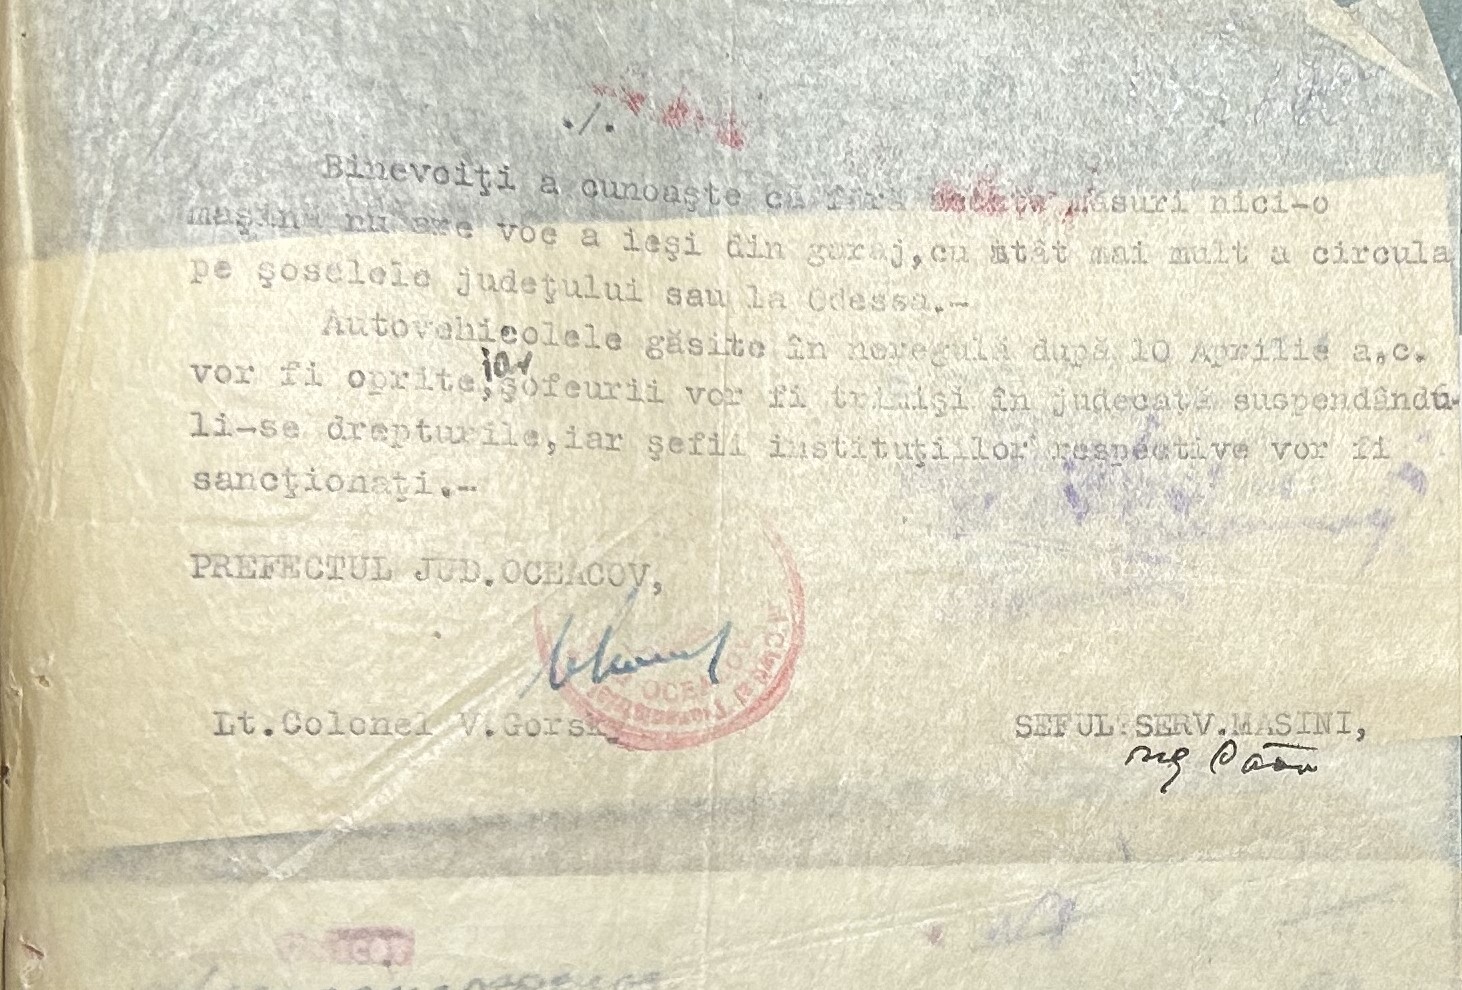 ./.
Binevoiţi a cunoaşte că fără aceste măsuri nici-o
maşină nu are voe a ieşi din garaj,cu atât mai mult a circula
pe şoselele judeţului sau la Odessa.-
Autovehicolele găsite în neregulă după 10 Aprilie a.c.
vor fi oprite, iar şofeurii vor fi trimişi în judecată suspendându-
li-se drepturile,iar şefii instituţiilor respective vor fi
sancţionaţi.-
PREFECTUL JUD.OCEACOV,
Lt.Colonel V.Gorsky
SEFUL SERV.MASINI,